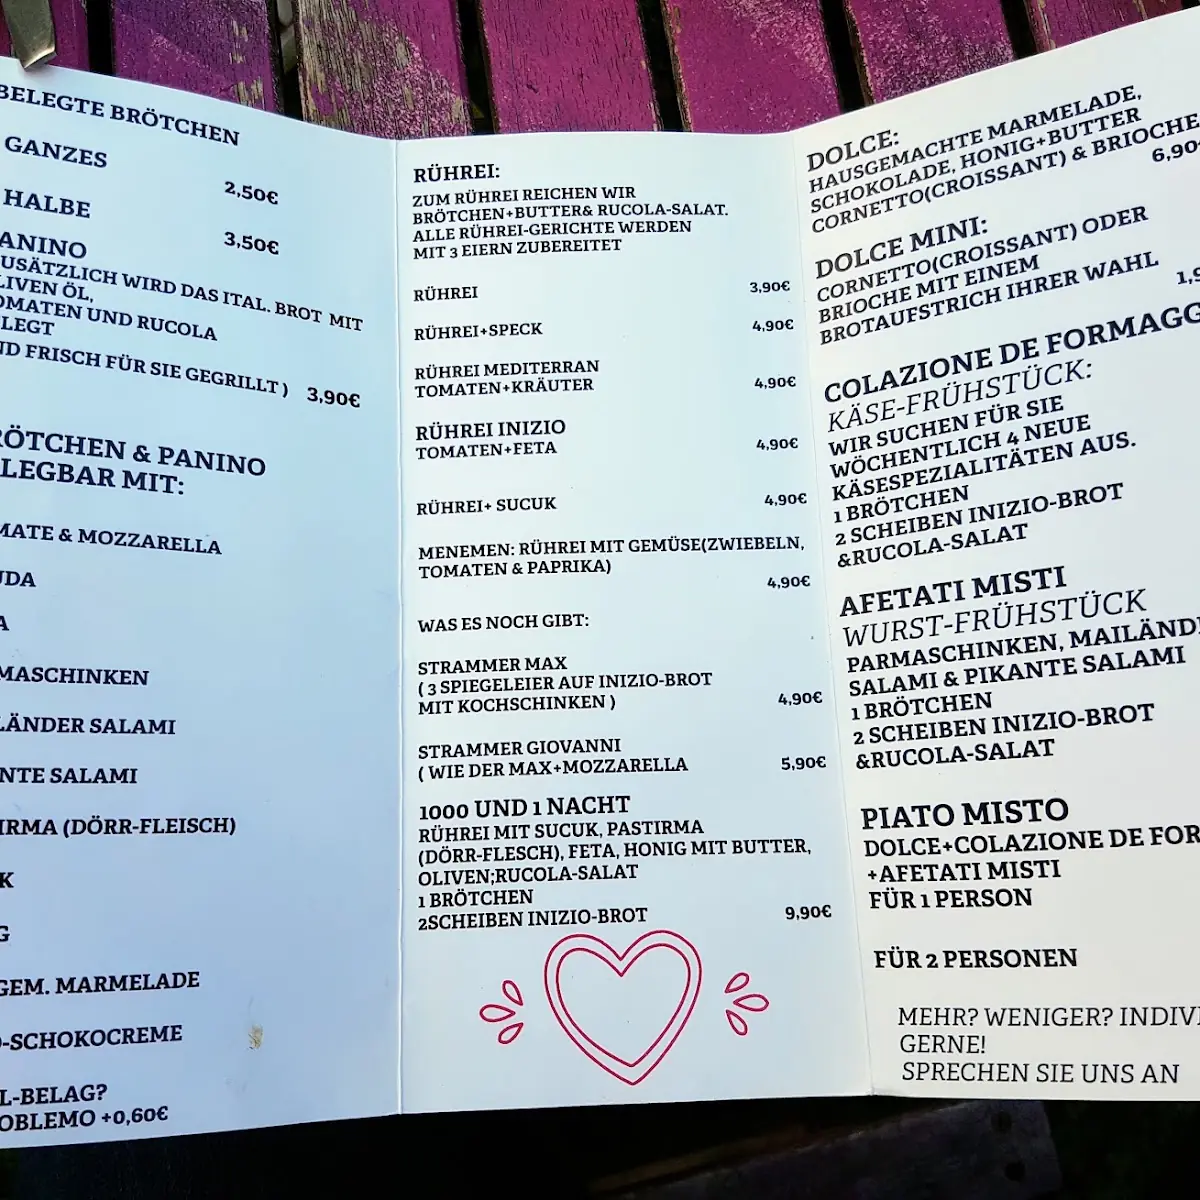 BELEGTE BRÖTCHEN
GANZES
2,50€
HALBE
3,50€
ANINO
USÄTZLICH WIRD DAS ITAL. BROT MIT
LIVEN ÖL,
OMATEN UND RUCOLA
LEGT
ND FRISCH FÜR SIE GEGRILLT ) 3,90€
RÖTCHEN & PANINO
LEGBAR MIT:
MATE & MOZZARELLA
UDA
A
MASCHINKEN
LÄNDER SALAMI
NTE SALAMI
IRMA (DÖRR-FLEISCH)
K
G
GEM. MARMELADE
O-SCHOKOCREME
L-BELAG?
OBLEMO +0,60€
RÜHREI:
ZUM RÜHREI REICHEN WIR
BRÖTCHEN+BUTTER& RUCOLA-SALAT.
ALLE RÜHREI-GERICHTE WERDEN
MIT 3 EIERN ZUBEREITET
RÜHREI 3,90€
RÜHREI+SPECK 4,90€
RÜHREI MEDITERRAN
TOMATEN+KRÄUTER 4,90€
RÜHREI INIZIO
TOMATEN+FETA 4,90€
RÜHREI+ SUCUK 4,90€
MENEMEN: RÜHREI MIT GEMÜSE(ZWIEBELN,
TOMATEN & PAPRIKA)
4,90€
WAS ES NOCH GIBT:
STRAMMER MAX
( 3 SPIEGELEIER AUF INIZIO-BROT
MIT KOCHSCHINKEN ) 4,90€
STRAMMER GIOVANNI
( WIE DER MAX+MOZZARELLA 5,90€
1000 UND 1 NACHT
RÜHREI MIT SUCUK, PASTIRMA
(DÖRR-FLESCH), FETA, HONIG MIT BUTTER,
OLIVEN;RUCOLA-SALAT
1 BRÖTCHEN
2SCHEIBEN INIZIO-BROT 9,90€
DOLCE:
HAUSGEMACHTE MARMELADE,
SCHOKOLADE, HONIG+BUTTER
CORNETTO(CROISSANT) & BRIOCHE
6,90€
DOLCE MINI:
CORNETTO(CROISSANT) ODER
BRIOCHE MIT EINEM
BROTAUFSTRICH IHRER WAHL
1,9
COLAZIONE DE FORMAGG
KÄSE-FRÜHSTÜCK:
WIR SUCHEN FÜR SIE
WÖCHENTLICH 4 NEUE
KÄSESPEZIALITÄTEN AUS.
1 BRÖTCHEN
2 SCHEIBEN INIZIO-BROT
&RUCOLA-SALAT
AFETATI MISTI
WURST-FRÜHSTÜCK
PARMASCHINKEN, MAILÄNDE
SALAMI & PIKANTE SALAMI
1 BRÖTCHEN
2 SCHEIBEN INIZIO-BROT
&RUCOLA-SALAT
PIATO MISTO
DOLCE+COLAZIONE DE FOR
+AFETATI MISTI
FÜR 1 PERSON
FÜR 2 PERSONEN
MEHR? WENIGER? INDIVI
GERNE!
SPRECHEN SIE UNS AN